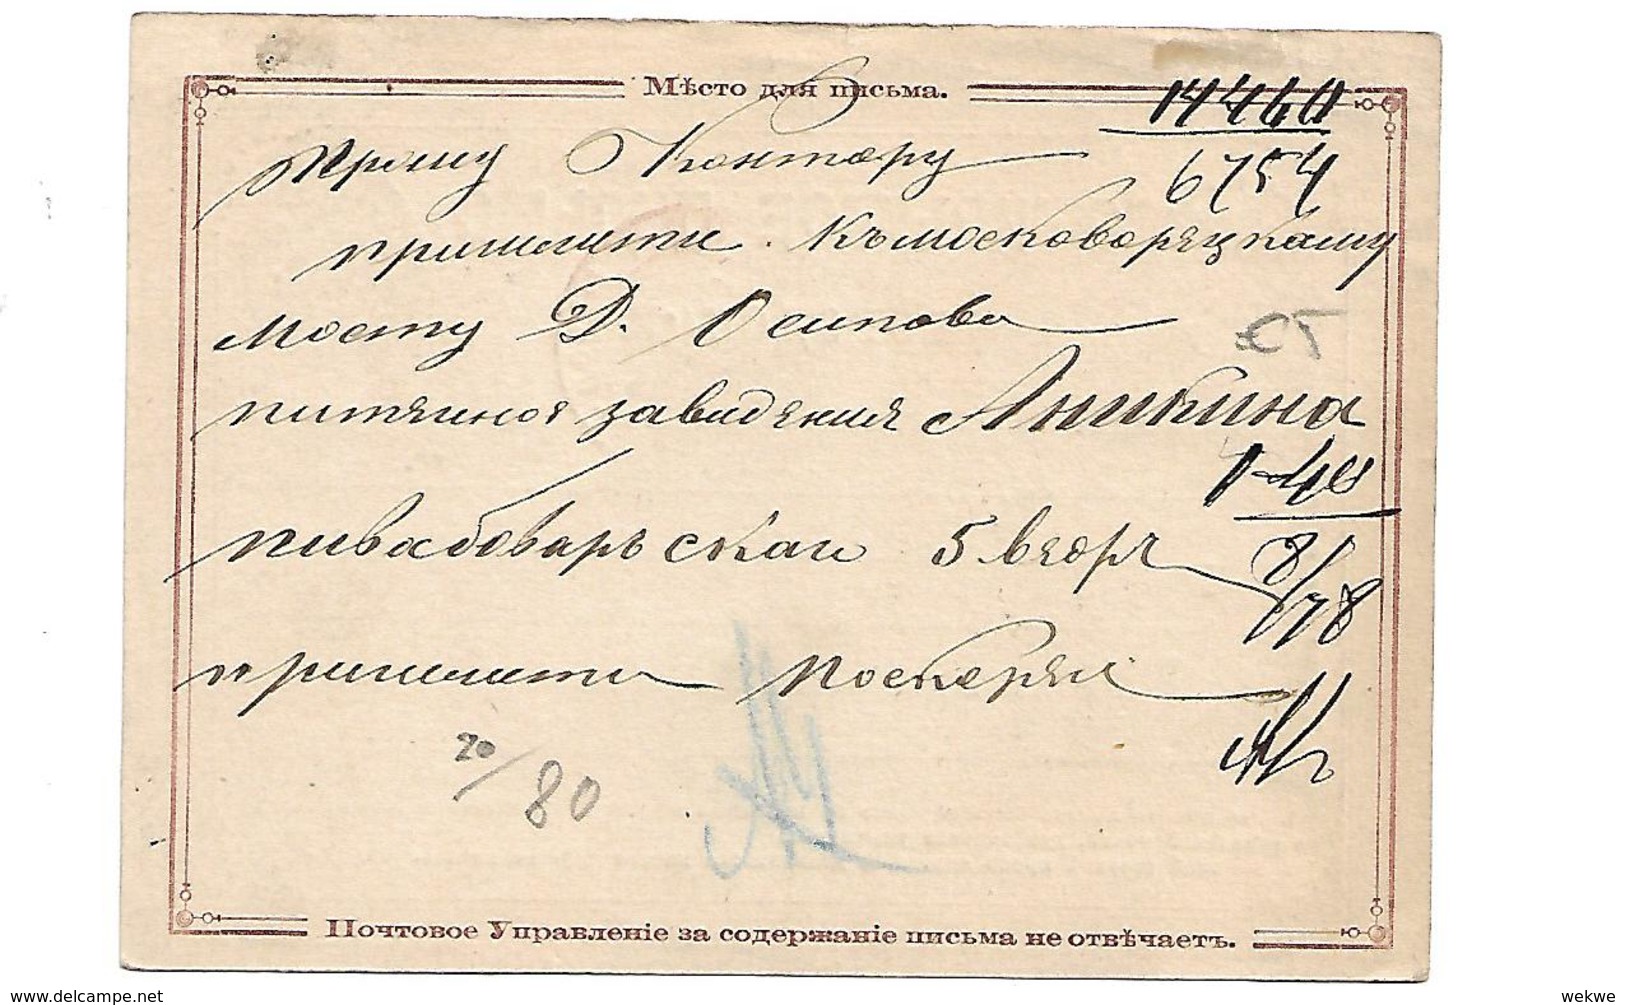 Мѣсто для письма.
14460
Прошу Контору
6754
пришлити Къмосковорецкаму
Мосту Д. Осипова
питейное заведения Аникина
пиваБоварьскаи 5 ведръ
8/78
пришлити поскерѣи
20/80
Почтовое Управленіе за содержаніе письма не отвѣчаетъ.
wekwe